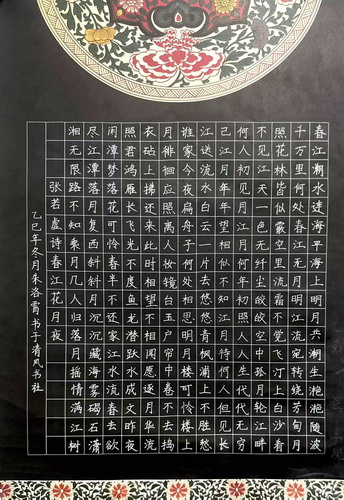 春江潮水连海平海上明月共潮生滟滟随波
千万里何处春江无月明江流宛转绕芳甸月
照花林皆似霰空里流霜不觉飞汀上白沙看
不见江天一色无纤尘皎皎空中孤月轮江畔
何人初见月江月何年初照人人生代代无穷
已江月年年望相似不知江月待何人但见长
江送流水白云一片去悠悠青枫浦上不胜愁
谁家今夜扁舟子何处相思明月楼可怜楼上
月徘徊应照离人妆镜台玉户帘中卷不去捣
衣砧上拂还来此时相望不相闻愿逐月华流
照君鸿雁长飞光不度鱼龙潜跃水成文昨夜
闲潭梦落花可怜春半不还家江水流春去欲
尽江潭落月复西斜斜月沉沉藏海雾碣石潇
湘无限路不知乘月几人归落月摇情满江树
张若虚诗春江花月夜
乙巳年冬月朱洛霄书于清风书社